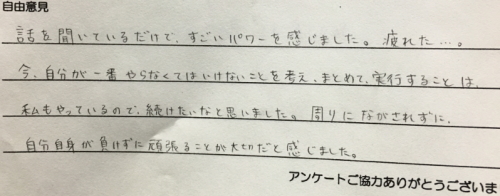 自由意見
話を聞いているだけで、すごいパワーを感じました。疲れた…。
今、自分が一番やらなくてはいけないことを考え、まとめて、実行することは、
私もやっているので、続けたいなと思いました。周りにながされずに、
自分自身が負けずに頑張ることが大切だと感じました。
アンケートご協力ありがとうございま